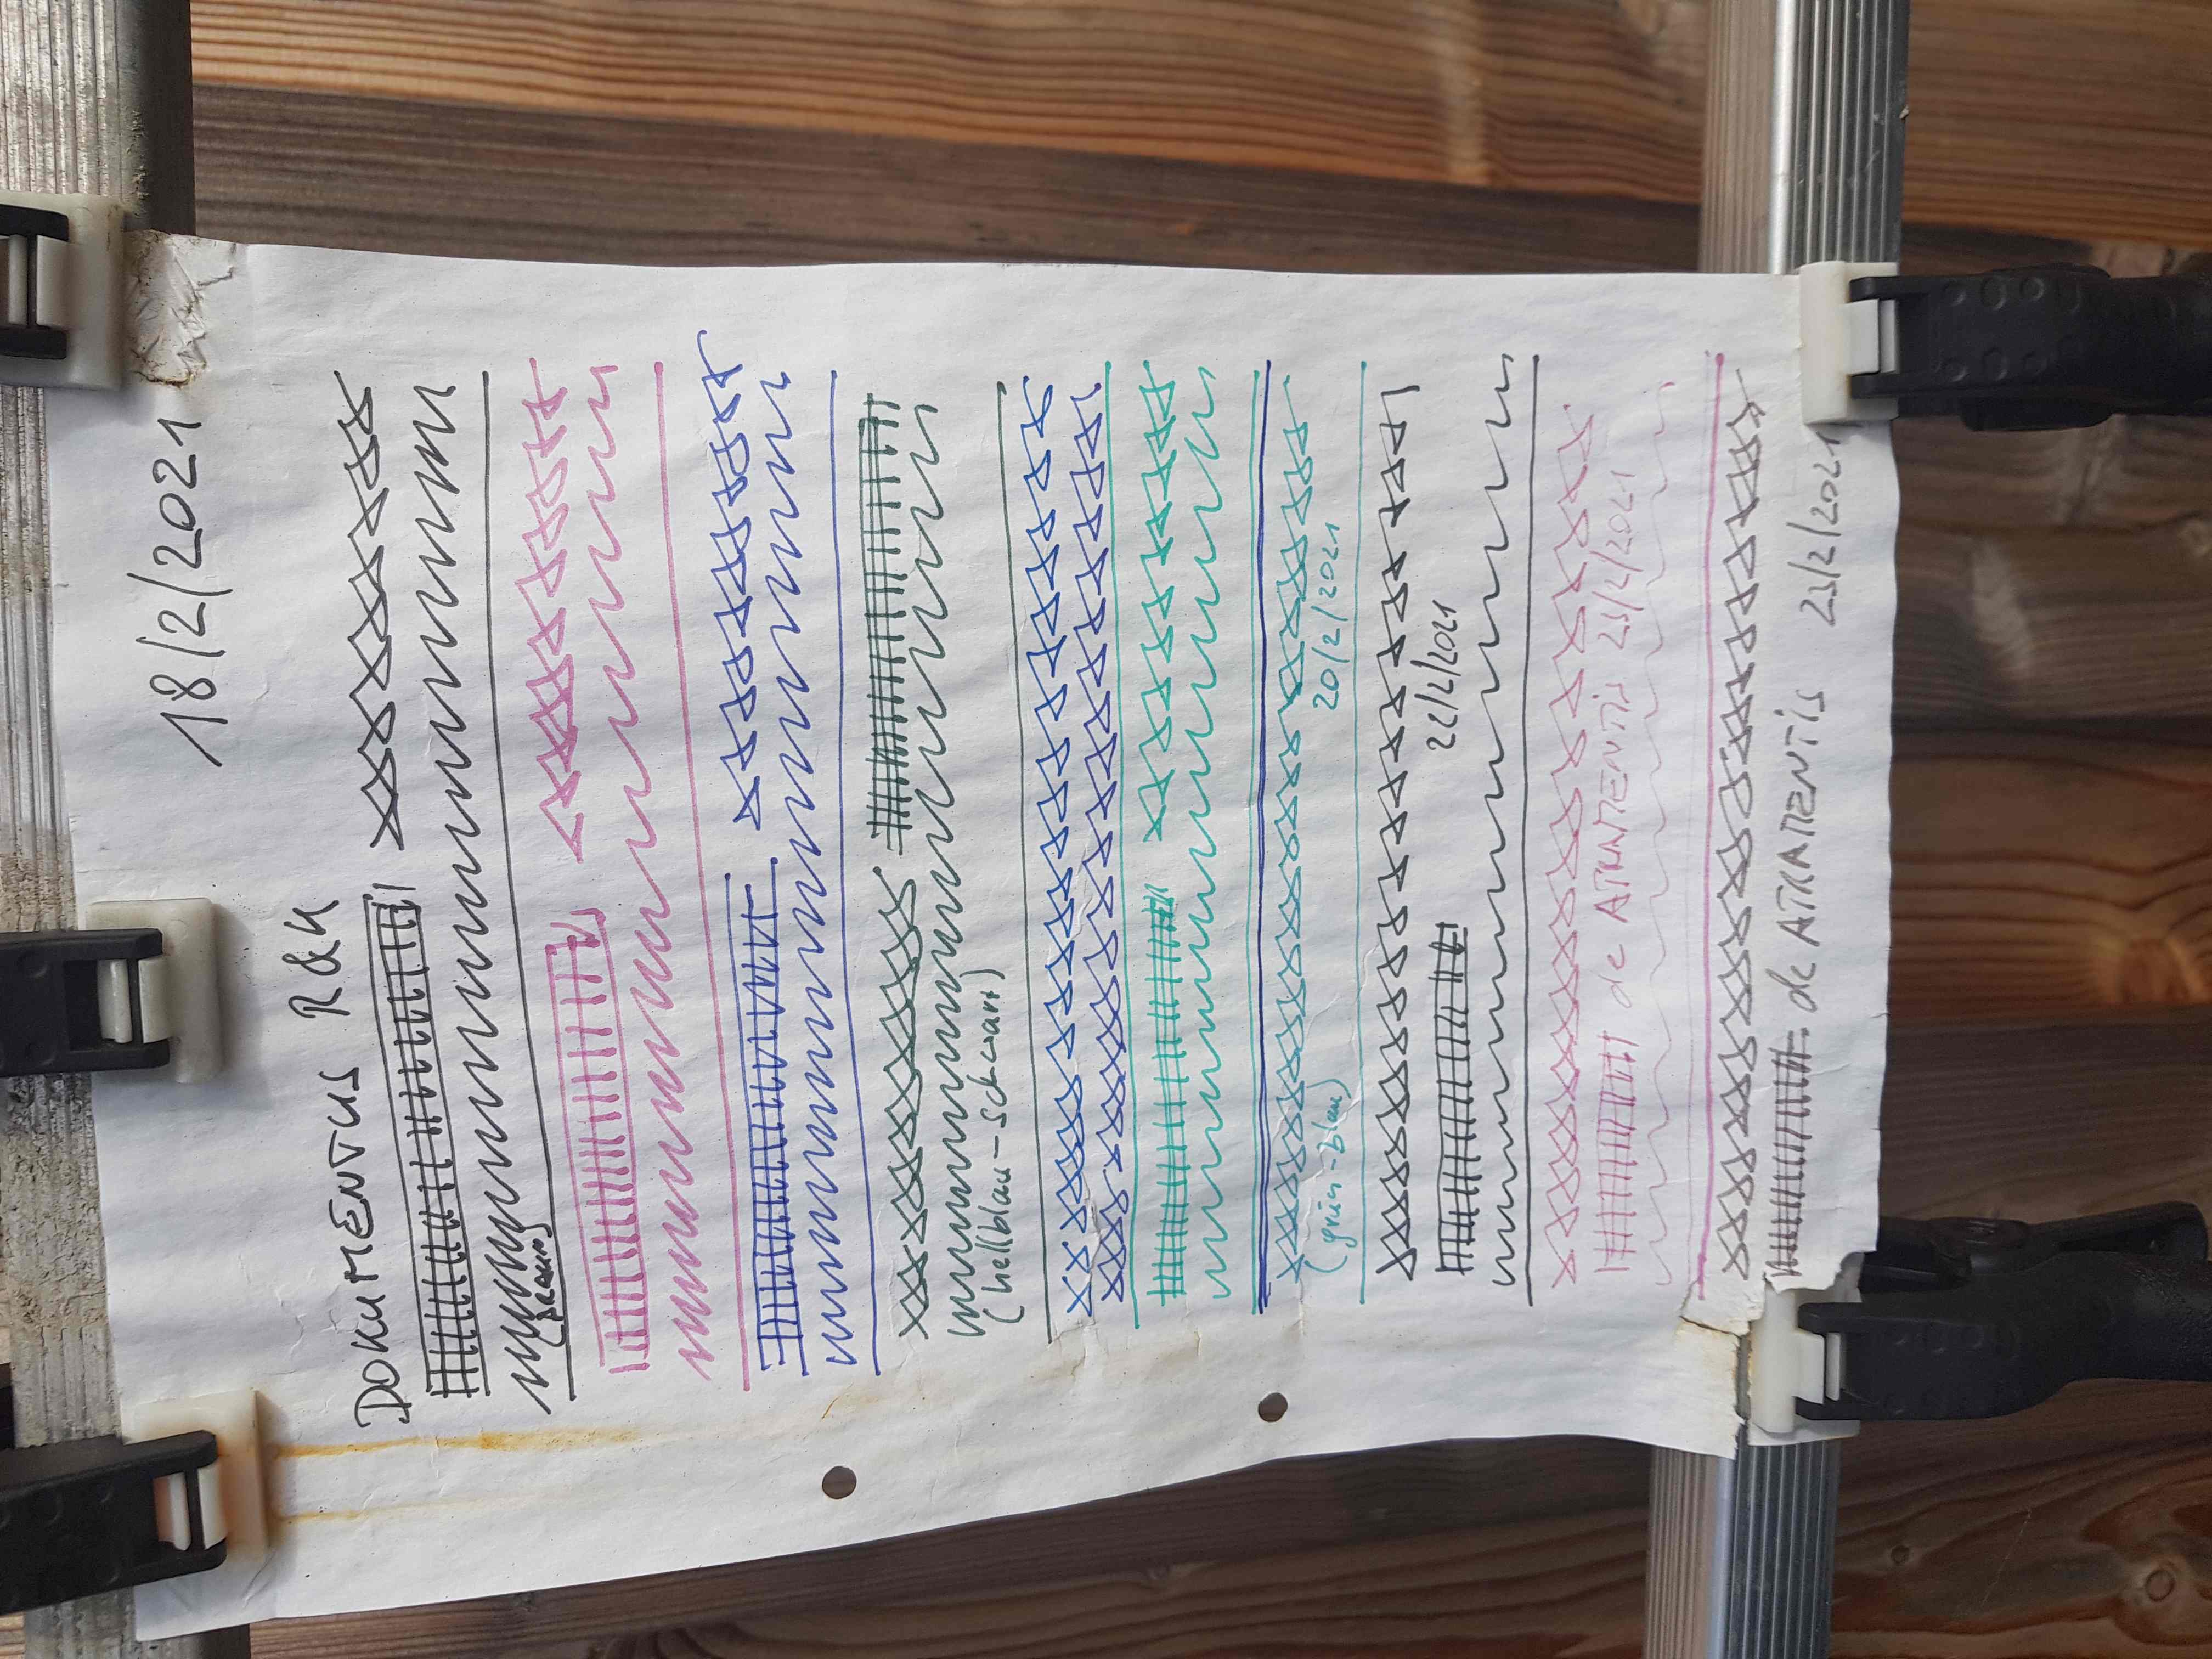 18/2/2021
DOKUMENTUS R&K
(BRAUN)
(hellblau-schwarz)
(grün-blau) 20/2/2021
22/2/2021
de ATRAMENTIS 23/2/2021
de ATRAMENTIS 23/2/2021